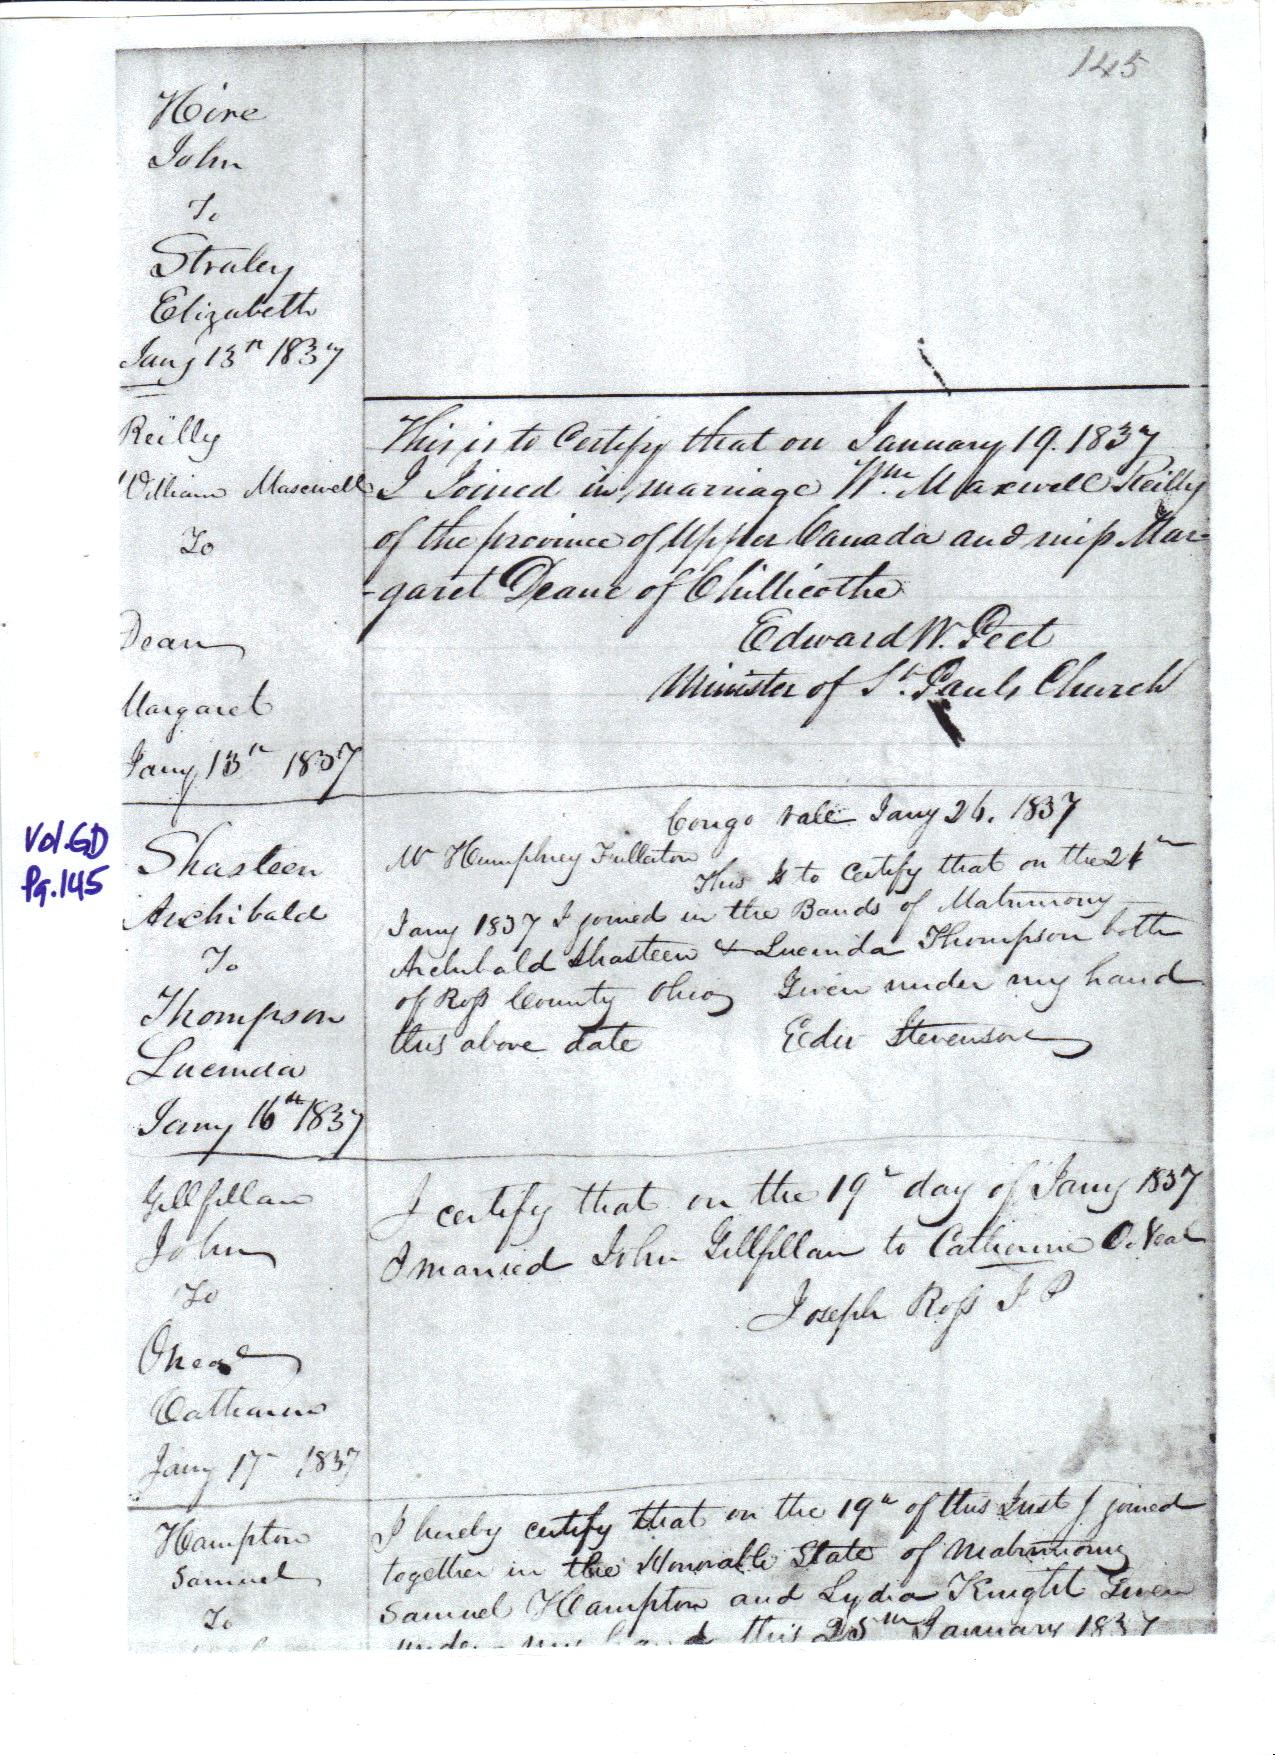 145
Hire
John
To
Straley
Elizabeth
Jany 13th 1837
Reilly
William Maxwell
To
Dean
Margaret
Jany 13th 1837
This is to Certify that on January 19. 1837
I Joined in marriage Wm. Maxwell Reilly
of the province of Upper Canada and miss Mar-
-garet Deane of Chillicothe
Edward W. Peet
Minister of St. Pauls Church
Vol. GD
Pg. 145
Shasteen
Archibald
To
Thompson
Lucinda
Jany 16th 1837
Congo vale Jany 26. 1837
Mr Humphrey Fullerton
This is to certify that on the
Jany 1837 I joined in the Bands of Matrimony
Archibald Shasteen & Lucinda Thompson both
of Ross County Ohio Given under my hand
this above date Edw Stevenson
Gillfillan
John
To
Oneal
Catharine
Jany 17th 1837
I certify that on the 19th day of Jany 1837
I married John Gillfillan to Catherine O. Neal
Joseph Ross J P
Hampton
Samuel
To
I hereby certify that on the 19th of this Inst I joined
together in the Honorable State of Matrimony
Samuel Hampton and Lydia Knight Given
under my hand this 25th January 1837